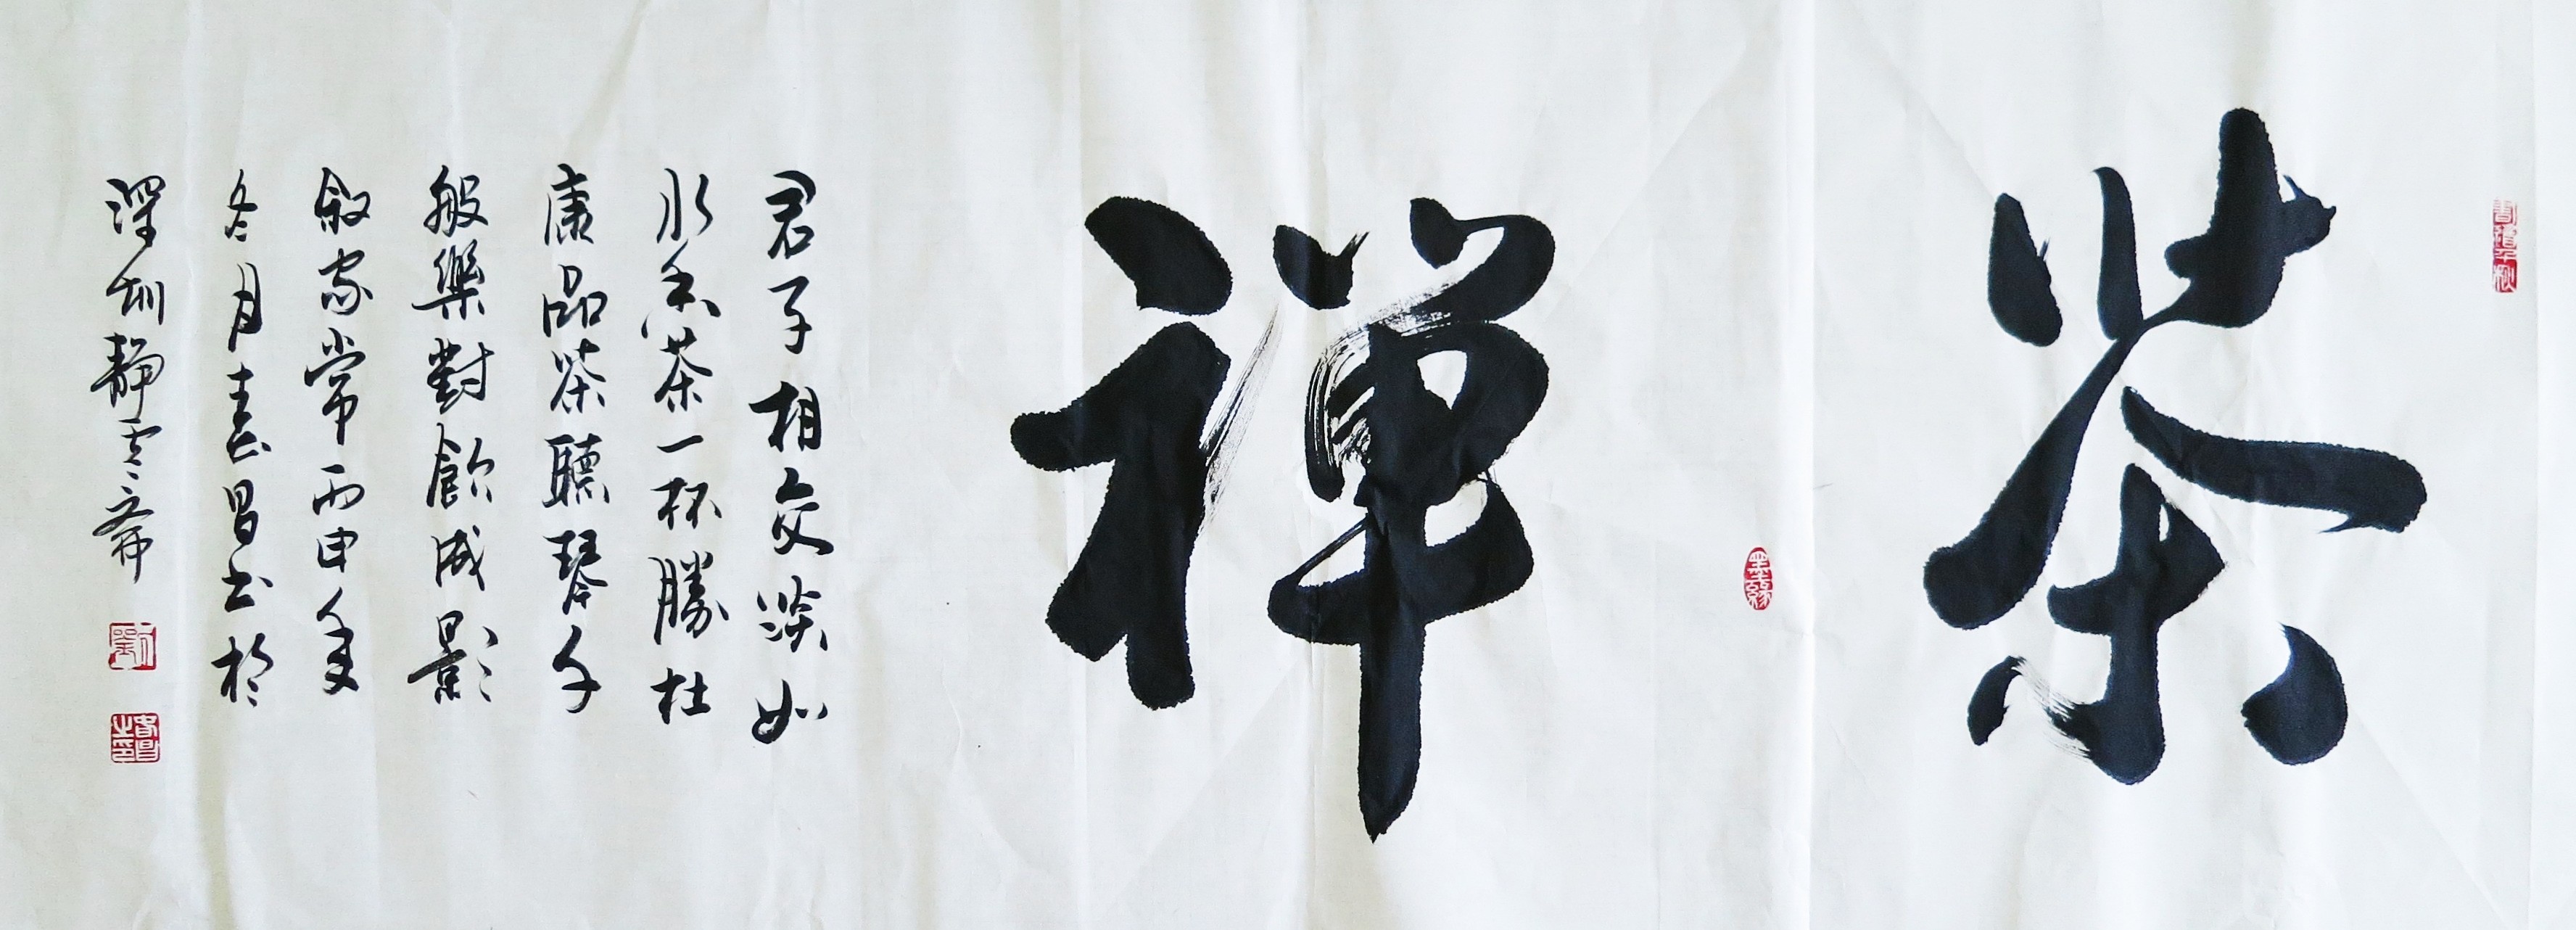 茶禅
君子相交淡如
水香茶一杯勝杜
康品茶聽琴千
般樂對飲成影
敘家常丙申年
冬月春昌书於
深圳靜雲斋
書道千秋
墨緣
劉
春昌之印